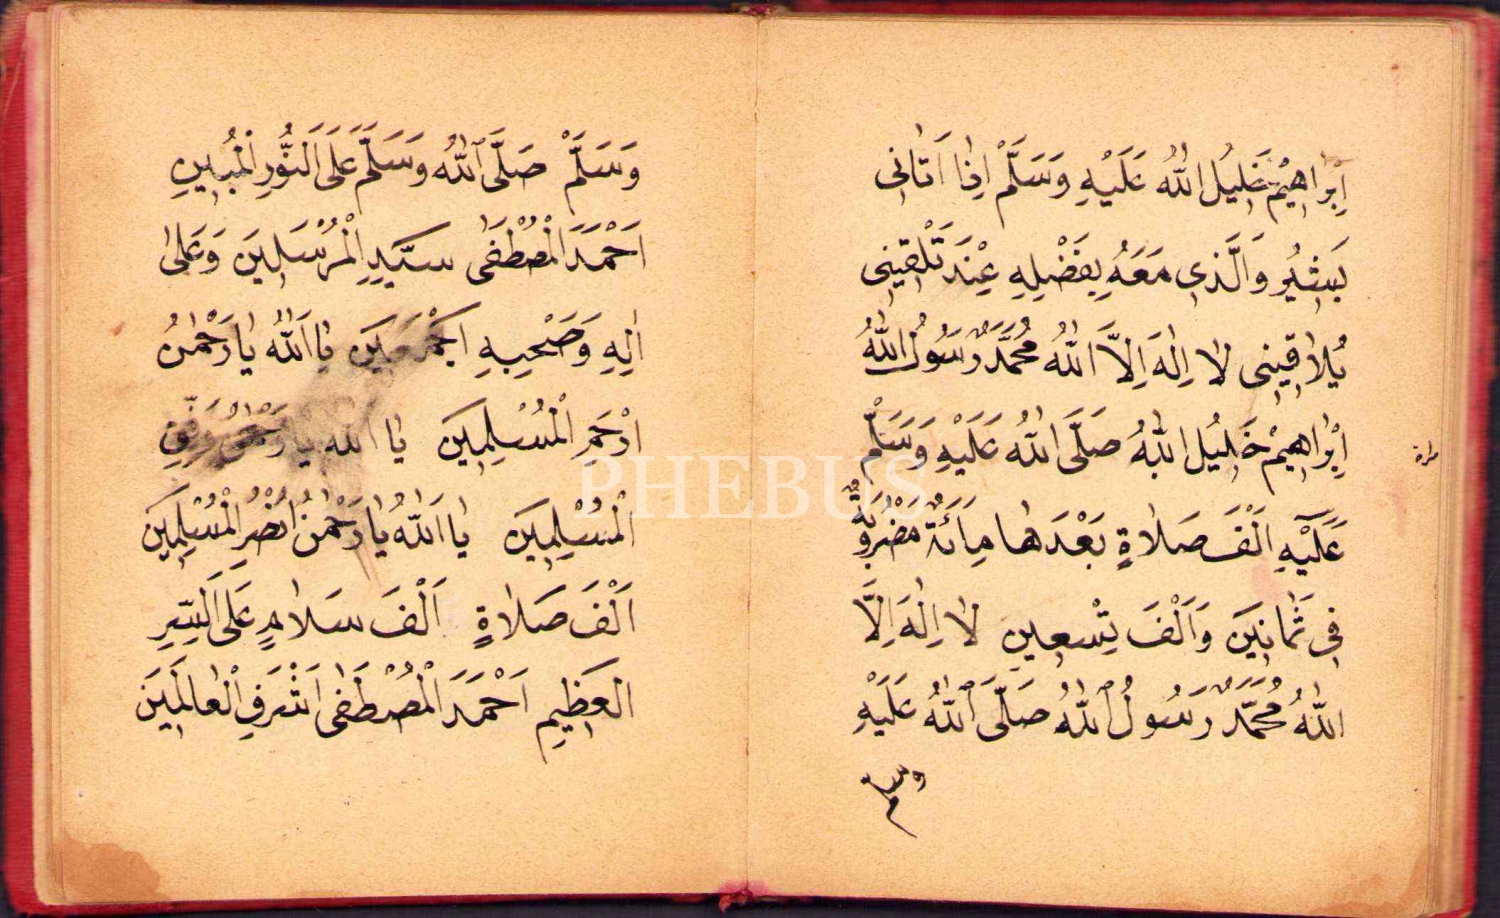 اِبْرَاهِيمْ خَلِيلُ اللّٰهُ عَلَيْهِ وَسَلَّمْ اِذَا اَتَانِى
بَشِيرُ وَالَّذِى مَعَهُ بِفَضْلِهِ عِنْدَ تَلْقِينِى
يُلَاقِينِى لَا اِلٰهَ اِلَّا اللّٰهُ مُحَمَّدٌ رَسُولُ اللّٰهُ
اِبْرَاهِيمْ خَلِيلُ اللّٰهُ صَلَّى اللّٰهُ عَلَيْهِ وَسَلَّمْ
عَلَيْهِ اَلْفَ صَلَاةٍ بَعْدَهَا مِأَئَةٌ مَضْرُوبَةٌ
فِى ثَمَانِينَ وَاَلْفَ تِسْعِينِ لَا اِلٰهَ اِلَّا
اللّٰهُ مُحَمَّدٌ رَسُولُ اللّٰهُ صَلَّى اللّٰهُ عَلَيْهِ
وسلم
وَسَلَّمْ صَلَّى اللّٰهُ وَسَلَّمَ عَلَى النُّورِ الْمُبِينِ
اَحْمَدَ الْمُصْطَفٰى سَيِّدِ الْمُرْسَلِينَ وَعَلٰى
اٰلِهِ وَصَحْبِهِ اَجْمَعِينَ يَا اَللّٰهُ يَا رَحْمٰنُ
اِرْحَمِ الْمُسْلِمِينَ يَا اَللّٰهُ يَا رَحْمٰنُ وَفِّقِ
الْمُسْلِمِينَ يَا اَللّٰهُ يَا رَحْمٰنُ اُنْصُرِ الْمُسْلِمِينَ
اَلْفَ صَلَاةٍ اَلْفَ سَلَامٍ عَلَى السِّرِ
الْعَظِيمِ اَحْمَدَ الْمُصْطَفٰى اَشْرَفِ الْعَالَمِينَ
PHEBUS